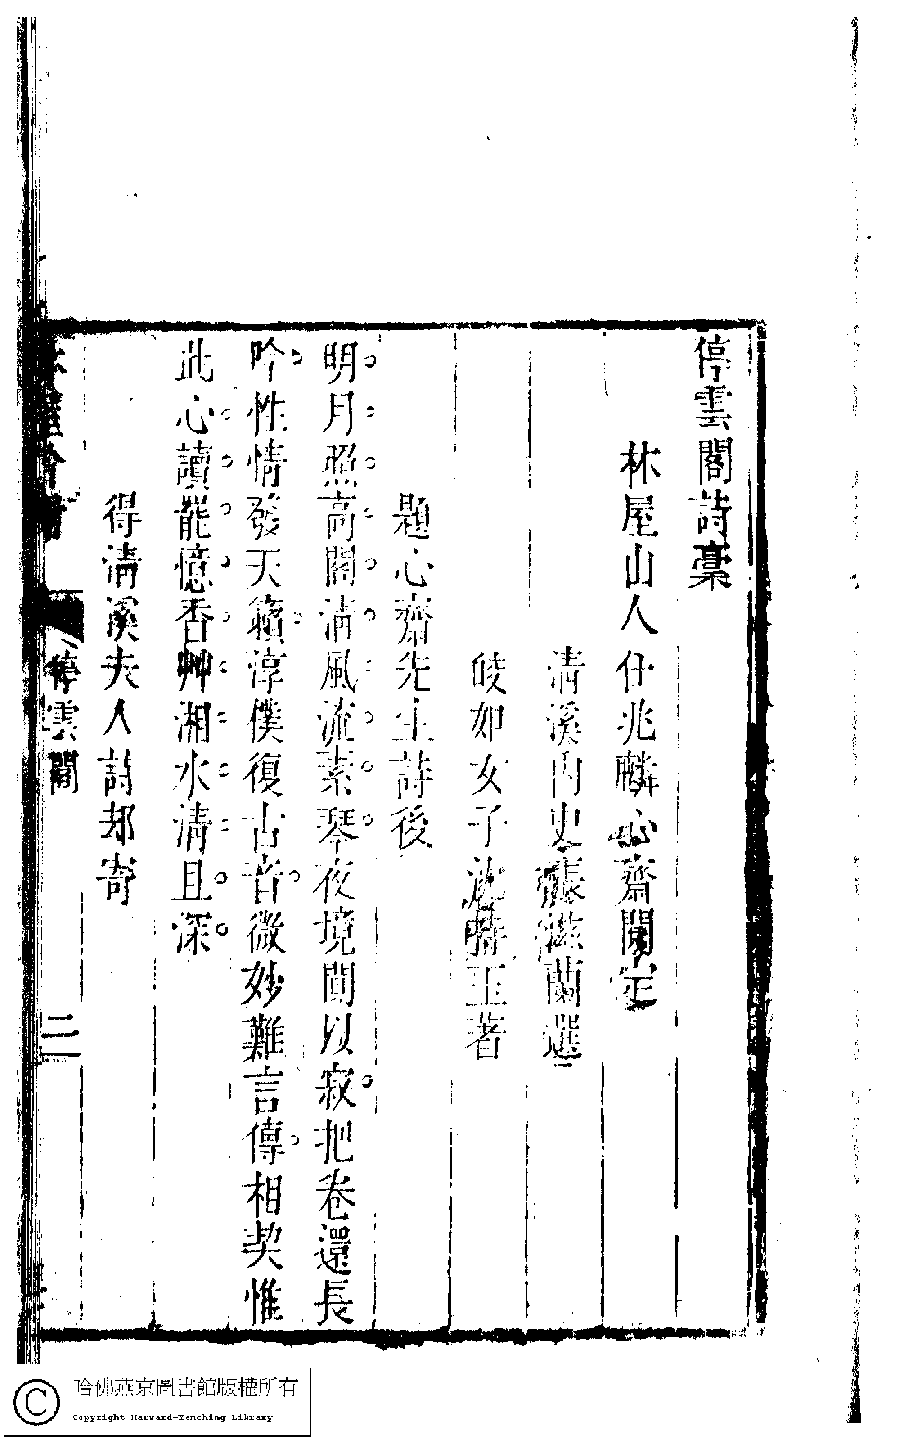 停雲閣詩稾
林屋山人任兆麟心齋閱定
清溪內史張滋蘭選
皎如女子沈持玉著
題心齋先生詩後
明月照高閣清風流素琴夜境閴以寂把卷還長
吟性情發天籟淳僕復古音微妙難言傳相契惟
此心讀罷憶香艸湘水清且深
得清溪夫人詩却寄
停雲閣
二
哈佛燕京圖書館版權所有
Copyright Harvard-Yenching Library